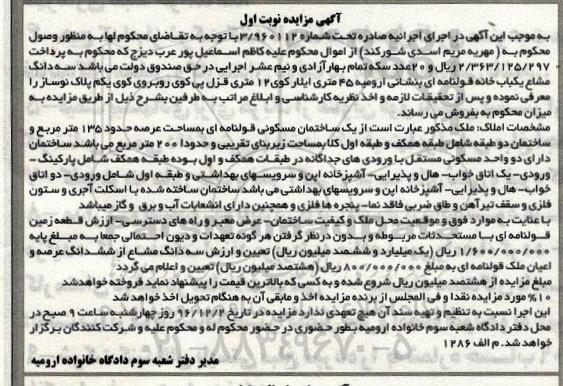 آگهی مزایده نوبت اول
به موجب این آگهی در اجرای اجرائیه صادره تحت شماره ۳/۹۶۰۱۱۲ با توجه به تقاضای محکوم لها به منظور وصول
محکوم به ( مهریه مریم اسدی شورکند) از اموال محکوم علیه کاظم اسماعیل پور عرب دیزج که محکوم به پرداخت
۲/۳۶۳/۱۲۵/۲۹۷ ریال و ۲۰عدد سکه تمام بهار آزادی و نیم عشر اجرایی در حق صندوق دولت می باشد سه دانگ
مشاع یکباب خانه قولنامه ای بنشانی ارومیه ۴۵ متری ایثار کوی۱۲ متری قزل پی کوی روبروی کوی یکم پلاک نوساز را
معرفی نموده و پس از تحقیقات لازمه و اخذ نظریه کارشناسی و ابلاغ مراتب به طرفین بشرح ذیل از طریق مزایده به
میزان محکوم به بفروش می رساند.
مشخصات املاک: ملک مذکور عبارت است از یک ساختمان مسکونی قولنامه ای بمساحت عرصه حدود ۱۳۵ متر مربع و
ساختمان دو طبقه شامل طبقه همکف و طبقه اول کلا بمساحت زیربنای تقریبی و حدودا ۲۰۰ متر مربع می باشد ساختمان
دارای دو واحد مسکونی مستقل با ورودی های جداگانه در طبقات همکف و اول بوده طبقه همکف شامل پارکینگ -
ورودی- یک اتاق خواب- هال و پذیرایی- آشپزخانه اپن و سرویسهای بهداشتی و طبقه اول شامل ورودی- دو اتاق
خواب- هال و پذیرایی- آشپزخانه اپن و سرویسهای بهداشتی می باشد ساختمان ساخته شده با اسکلت آجری و ستون
فلزی و سقف تیر آهن و طاق ضربی فاقد نما- پنجره ها فلزی و همچنین دارای انشعابات آب و برق و گاز میباشد
با عنایت به موارد فوق و موقعیت محل ملک و کیفیت ساختمان- عرض معبر و راه های دسترسی- ارزش قطعه زمین
قولنامه ای با مستحدثات مربوطه و بدون در نظر گرفتن هر گونه تعهدات و دیون احتمالی جمعا به مبلغ پایه
۱/۶۰۰/۰۰۰/۰۰۰ ریال (یک میلیارد و ششصد میلیون ریال) تعیین و ارزش سه دانگ مشاع از ششدانگ عرصه و
اعیان ملک قولنامه ای به مبلغ ۸۰۰/۰۰۰/۰۰۰ ریال (هشتصد میلیون ریال) تعیین و اعلام می گردد
مبلغ مزایده از هشتصد میلیون ریال شروع شده و به کسی که بالاترین قیمت را پیشنهاد نماید فروخته خواهد شد
۱۰% مورد مزایده نقدا و فی المجلس از برنده مزایده اخذ و مابقی آن به هنگام تحویل اخذ خواهد شد
این اجرا نسبت به تنظیم و تهیه سند آن هیچ تعهدی ندارد مزایده در تاریخ ۹۶/۱۲/۲ روز چهارشنبه ساعت ۹ صبح در
محل دفتر دادگاه شعبه سوم خانواده ارومیه بطور حضوری در حضور محکوم له و محکوم علیه و شرکت کنندگان برگزار
خواهد شد. م الف ۱۲۸۶
مدیر دفتر شعبه سوم دادگاه خانواده ارومیه